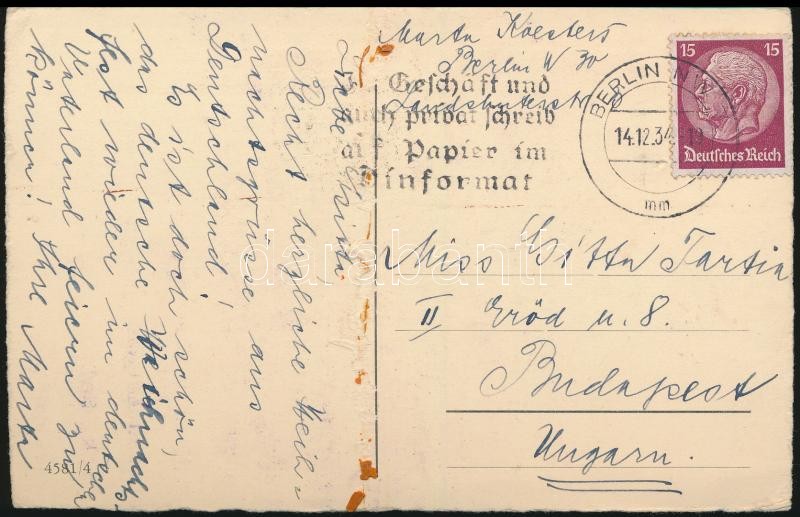 Marta Koesters
Berlin W 30
Geschäft und
auch privat schreib
auf Papier im
Dinformat
BERLIN NW
14.12.34
mm
15 15
Deutsches Reich
Liebe Gitta,
Recht herzliche Weih-
nachtsgrüsse aus
Deutschland!
Es ist doch schön,
das deutsche Weihnachts-
fest wieder im deutschen
Vaterland feiern zu
können! Ihre Marta
4581/4
Miss Gitta Tartia
II Eröd u. 8.
Budapest
Ungarn.
darabanth